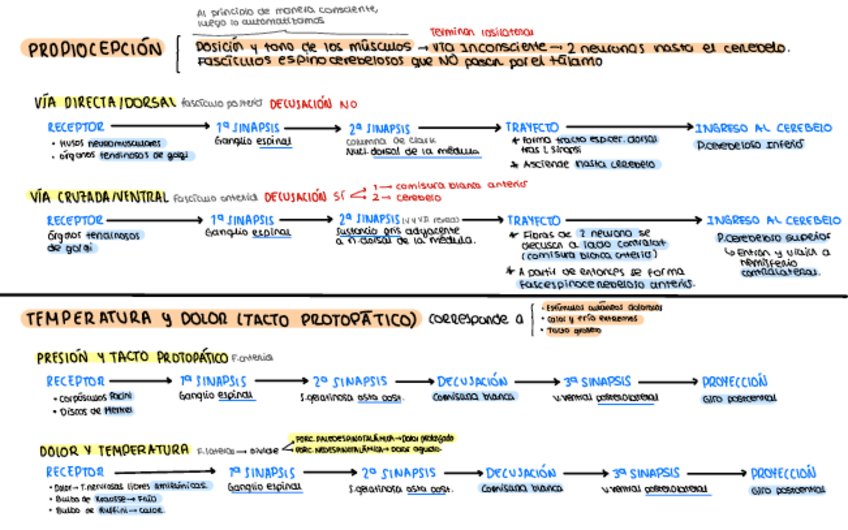 Al principio de manera consciente,
luego lo automatizamos
Terminan ipsilateral
PROPIOCEPCIÓN
Posición y tono de los músculos → vía inconsciente → 2 neuronas hasta el cerebelo.
Fascículos espinocerebelosos que NO pasan por el tálamo
VÍA DIRECTA/DORSAL fascículo posterior DECUSACIÓN NO
RECEPTOR → 1ª SINAPSIS → 2ª SINAPSIS → TRAYECTO → INGRESO AL CEREBELO
• Husos neuromusculares
• órganos tendinosos de golgi
Ganglio espinal
columna de Clark
Nucl. dorsal de la médula
* Forma tracto espcer. dorsal
tras 2 sinapsi
* Asciende hasta cerebelo
P.cerebeloso inferio
VÍA CRUZADA/VENTRAL Fascículo anterio DECUSACIÓN SÍ
1 → comisura blanca anterio
2 → cerebelo
RECEPTOR → 1ª SINAPSIS → 2ª SINAPSIS → TRAYECTO → INGRESO AL CEREBELO
órganos tendinosos
de golgi
Ganglio espinal
Sustancia gris adyacente
a n.dorsal de la médula.
* Fibras de 2 neurona se
decusan a lado contralat
(comisura blanca anterio)
* A partir de entonces se forma
Fascespinocerebeloso anterio.
P.cerebeloso superior
↳ Entran y viajan a
hemisferio
contralateral.
TEMPERATURA Y DOLOR (TACTO PROTOPÁTICO) corresponde a
• Estímulos cutáneos dolorosos
• Calor y frío extremos
• Tacto grosero
PRESIÓN Y TACTO PROTOPÁTICO F.anterio
RECEPTOR → 1ª SINAPSIS → 2ª SINAPSIS → DECUSACIÓN → 3ª SINAPSIS → PROYECCIÓN
• Corpúsculos Pacini
• Discos de Merkel
Ganglio espinal
S.gelatinosa asta post.
Comisura blanca
V.ventral posterolateral
Giro postcentral
DOLOR Y TEMPERATURA F.lateral → Divide
PORC. PALEOESPINOTALÁMICA → Dolor prolongado
PORC. NEOESPINOTALÁMICA → Dolor agudo
RECEPTOR → 1ª SINAPSIS → 2ª SINAPSIS → DECUSACIÓN → 3ª SINAPSIS → PROYECCIÓN
• Dolor → T.nerviosas libres amielínicas.
• Bulbo de Krausse → Frío
• Bulbo de Ruffini → calor.
Ganglio espinal
S.gelatinosa asta post.
Comisura blanca
V.ventral posterolateral
Giro postcentral